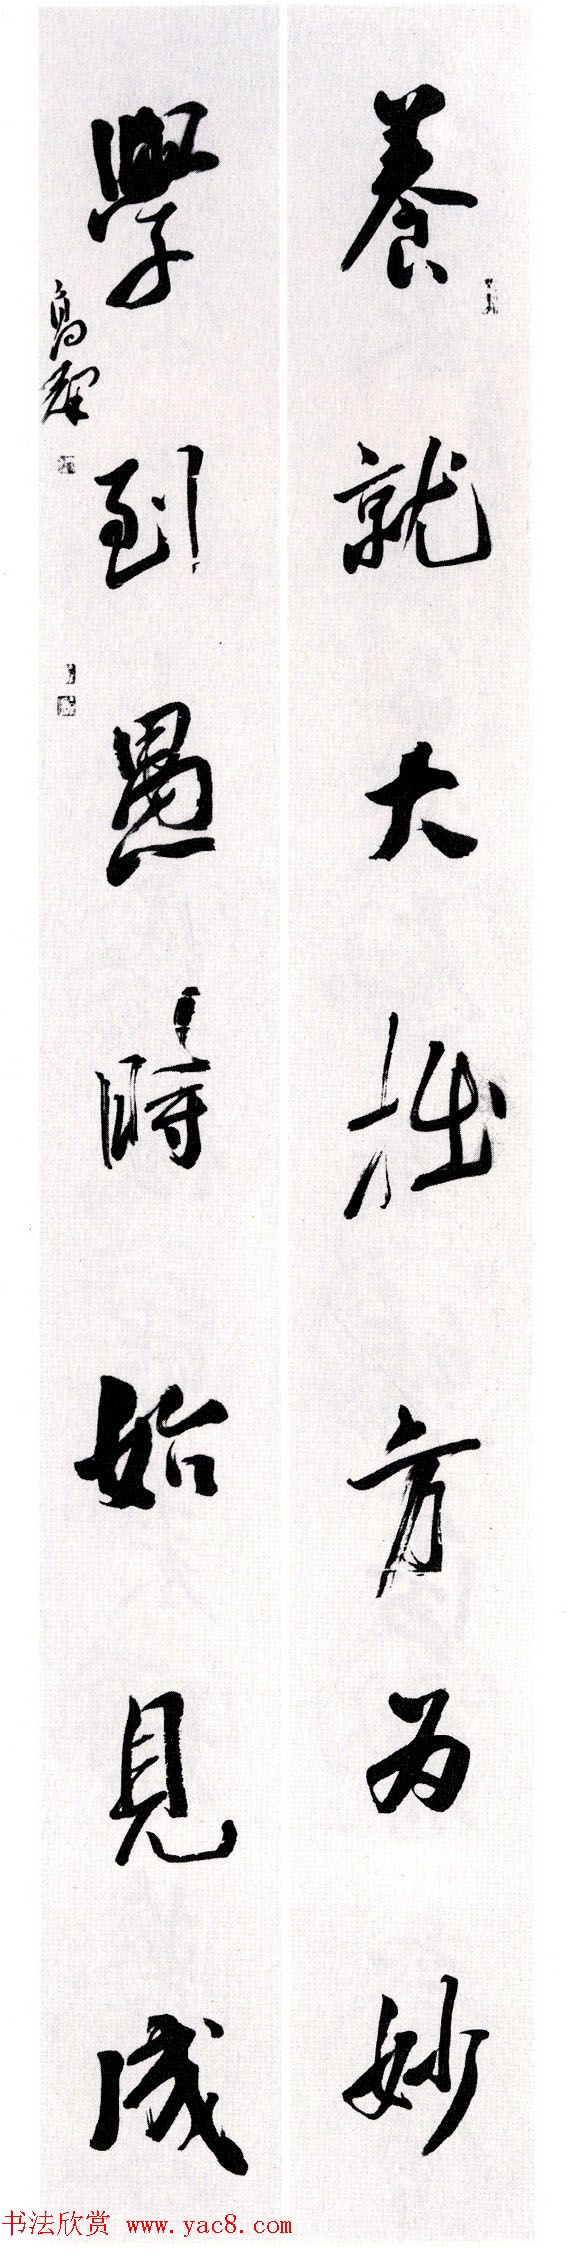 養就大拙方为妙
學到愚時始見成
书法欣赏 www.yac8.com